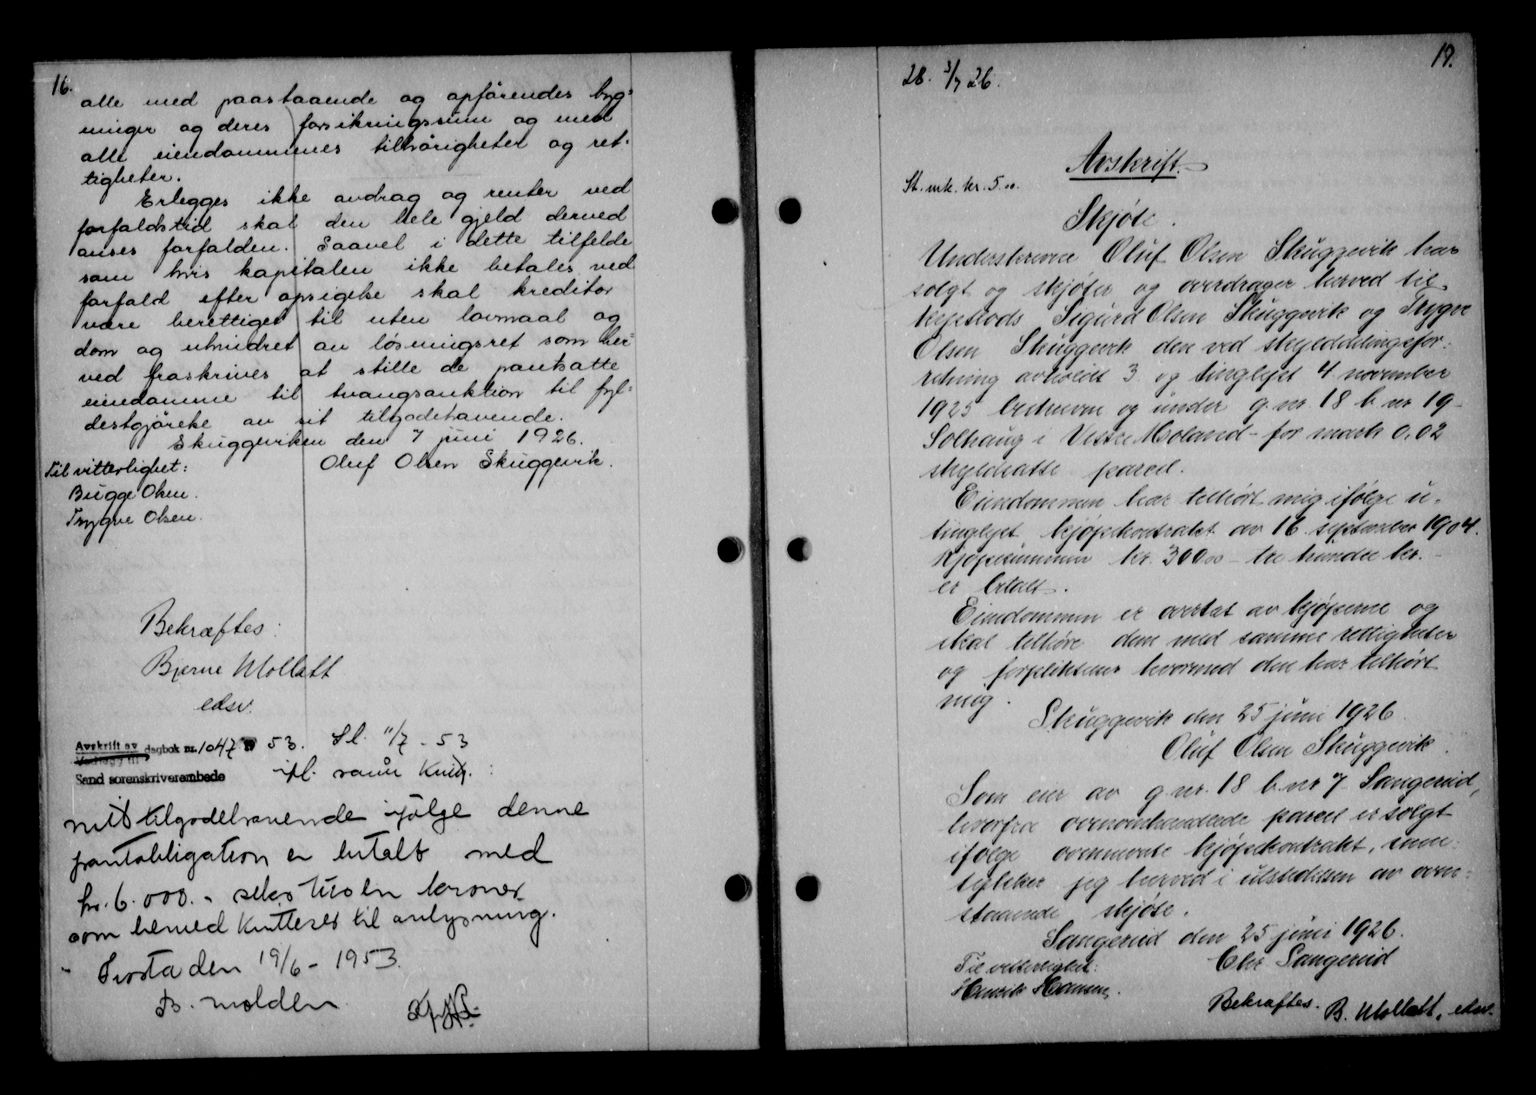 16.
alle med paastaaende og opførendes byg=
ninger og deres forsikringssum og med
alle eiendommenes tilhørigheter og ret-
tigheter.
Erlegges ikke avdrag og renter ved
forfaldstid skal den hele gjeld derved
anses forfalden. Saavel i dette tilfelde
som hvis kapitalen ikke betales ved
forfald efter opsigelse skal kreditor
være berettiget til uten lovmaal og
dom og uhindret av løsningsret som her=
ved fraskrives at stille de pantsatte
eiendomme til tvangsauktion til fyl=
destgjørelse av sit tilgodehavende.
Skuggeviken den 7 juni 1926.
Til vitterlighet:
Oluf Olsen Skuggevik.
Bugge Olsen.
Trygve Olsen.
Bekræftes:
Bjerne Mollatt
edsv.
Avskrift av dagbok nr. 1047 53. tl. 11/7 - 53
Sand sorenskriverembede
Mit tilgodehavende ifølge denne
pantobligation er betalt med
kr. 6.000.- seks tusen kroner
som herved kvitteres til avlysning.
Tvosta den 19/6 - 1953.
B. Molden
19.
28. 3/7 26.
Avskrift.
St. mk. kr. 5.00.
Skjøte.
Underskrevne Oluf Olsen Skuggevik har
solgt og skjøter og overdrager herved til
Sigurd Olsen Skuggevik og Trygve
Olsen Skuggevik den ved skylddelingsfor=
retning avholdt 3 og tinglyst 4 november
1925 bedrevne og under g. nr 18 b. nr 19
Solhaug i Vestre Moland - for mark 0,02
skyldsatte parcel.
Eiendommen har tilhørt mig ifølge u-
tinglyst kjøpekontrakt av 16 september 1904.
Kjøpesummen kr. 300.00 - tre hundre kr. -
er betalt.
Eiendommen er overtat av kjøperne og
skal tilhøre dem med samme rettigheter
og forpliktelser hvormed den har tilhørt
mig.
Skuggevik den 25 juni 1926.
Oluf Olsen Skuggevik.
Som eier av g. nr. 18 b. nr 7 Sangereid,
hvorfra ovenomhandlede parcel er solgt
ifølge ovennevnte kjøpekontrakt, sam=
tykker jeg herved i utstedelsen av oven=
staaende skjøte.
Sangereid den 25 juni 1926.
Til vitterlighet:
Chr Sangereid
Henrik Hansen.
Bekræftes. B. Mollatt, edsv.